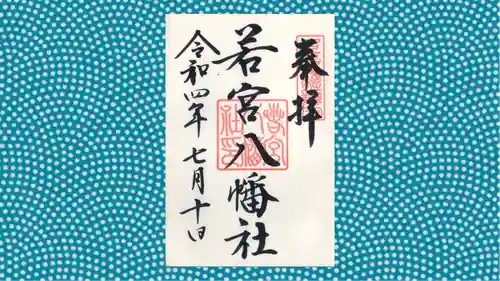 奉拝
若宮八幡社
令和四年七月十日